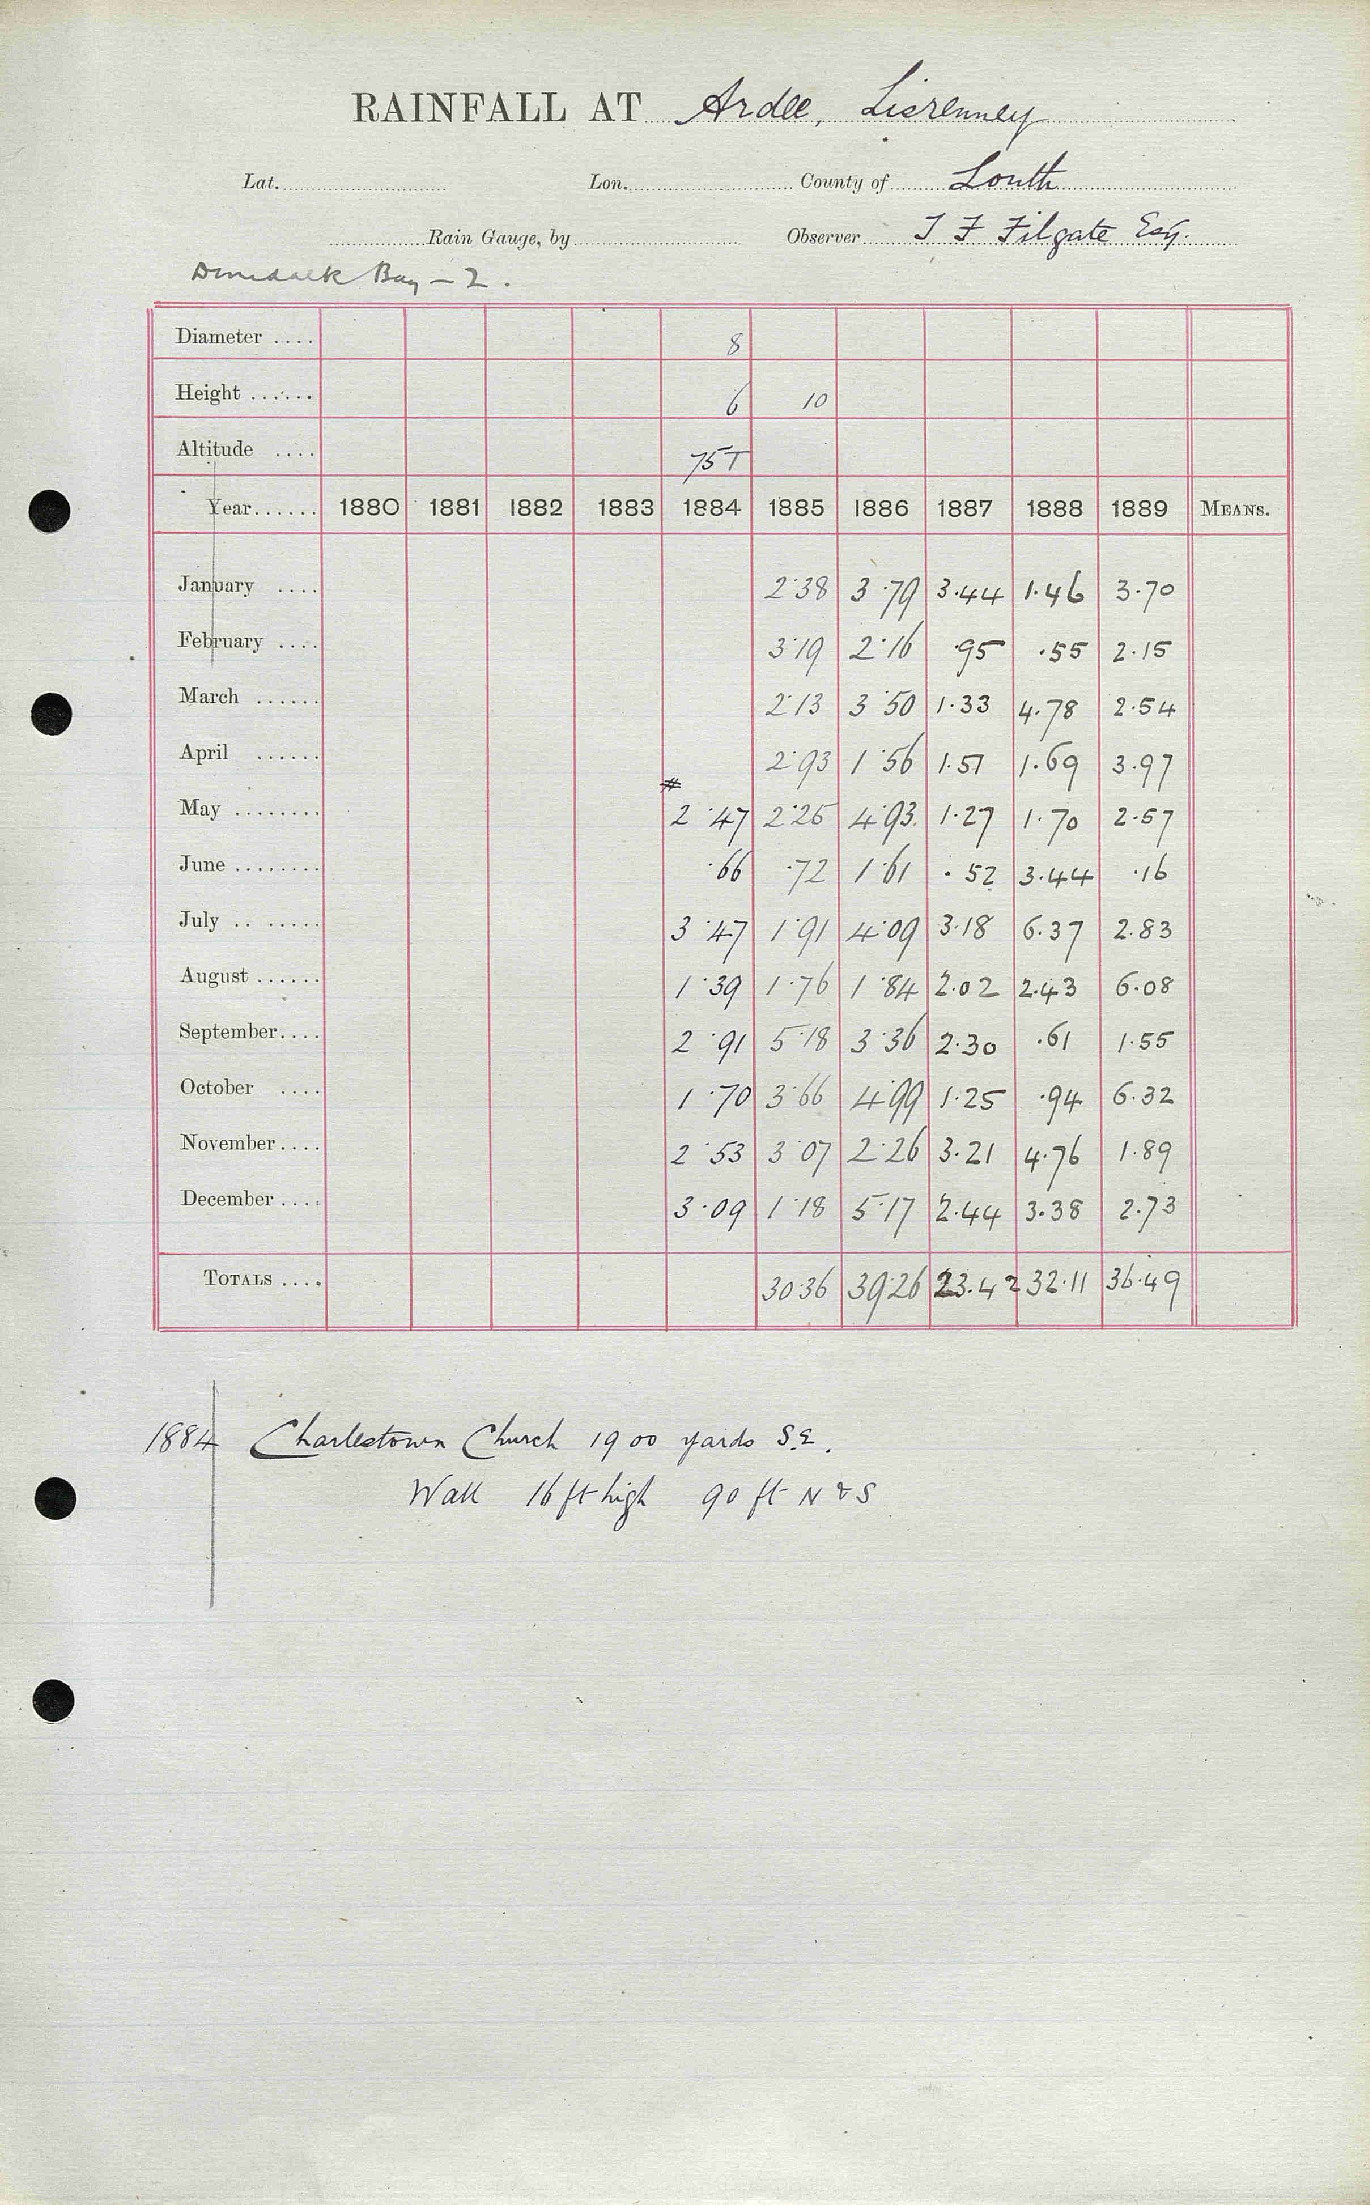 RAINFALL AT Ardee, Lisrenney
Lat. Lon. County of Louth
Rain Gauge, by Observer T F Filgate Esq.
Dundalk Bay – 2.
Diameter .... 8
Height ...... 6 10
Altitude .... 75T
Year...... 1880 1881 1882 1883 1884 1885 1886 1887 1888 1889 MEANS.
January .... 2·38 3·79 3.44 1.46 3.70
February .... 3·19 2·16 .95 .55 2.15
March ...... 2·13 3·50 1.33 4.78 2.54
April ...... 2·93 1·56 1.51 1.69 3.97
#
May ........ 2·47 2·25 4·93 1.27 1.70 2.57
June ........ ·66 ·72 1·61 .52 3.44 .16
July .. ..... 3·47 1·91 4·09 3.18 6.37 2.83
August ...... 1·39 1·76 1·84 2.02 2.43 6.08
September.... 2·91 5·18 3·36 2.30 .61 1.55
October .... 1·70 3·66 4·99 1.25 .94 6.32
November.... 2·53 3·07 2·26 3.21 4.76 1.89
December .... 3·09 1·18 5·17 2.44 3.38 2.73
TOTALS .... 30·36 39·26 23.42 32.11 36.49
1884 Charlestown Church 1900 yards S.E.
Wall 16 ft high 90 ft N & S